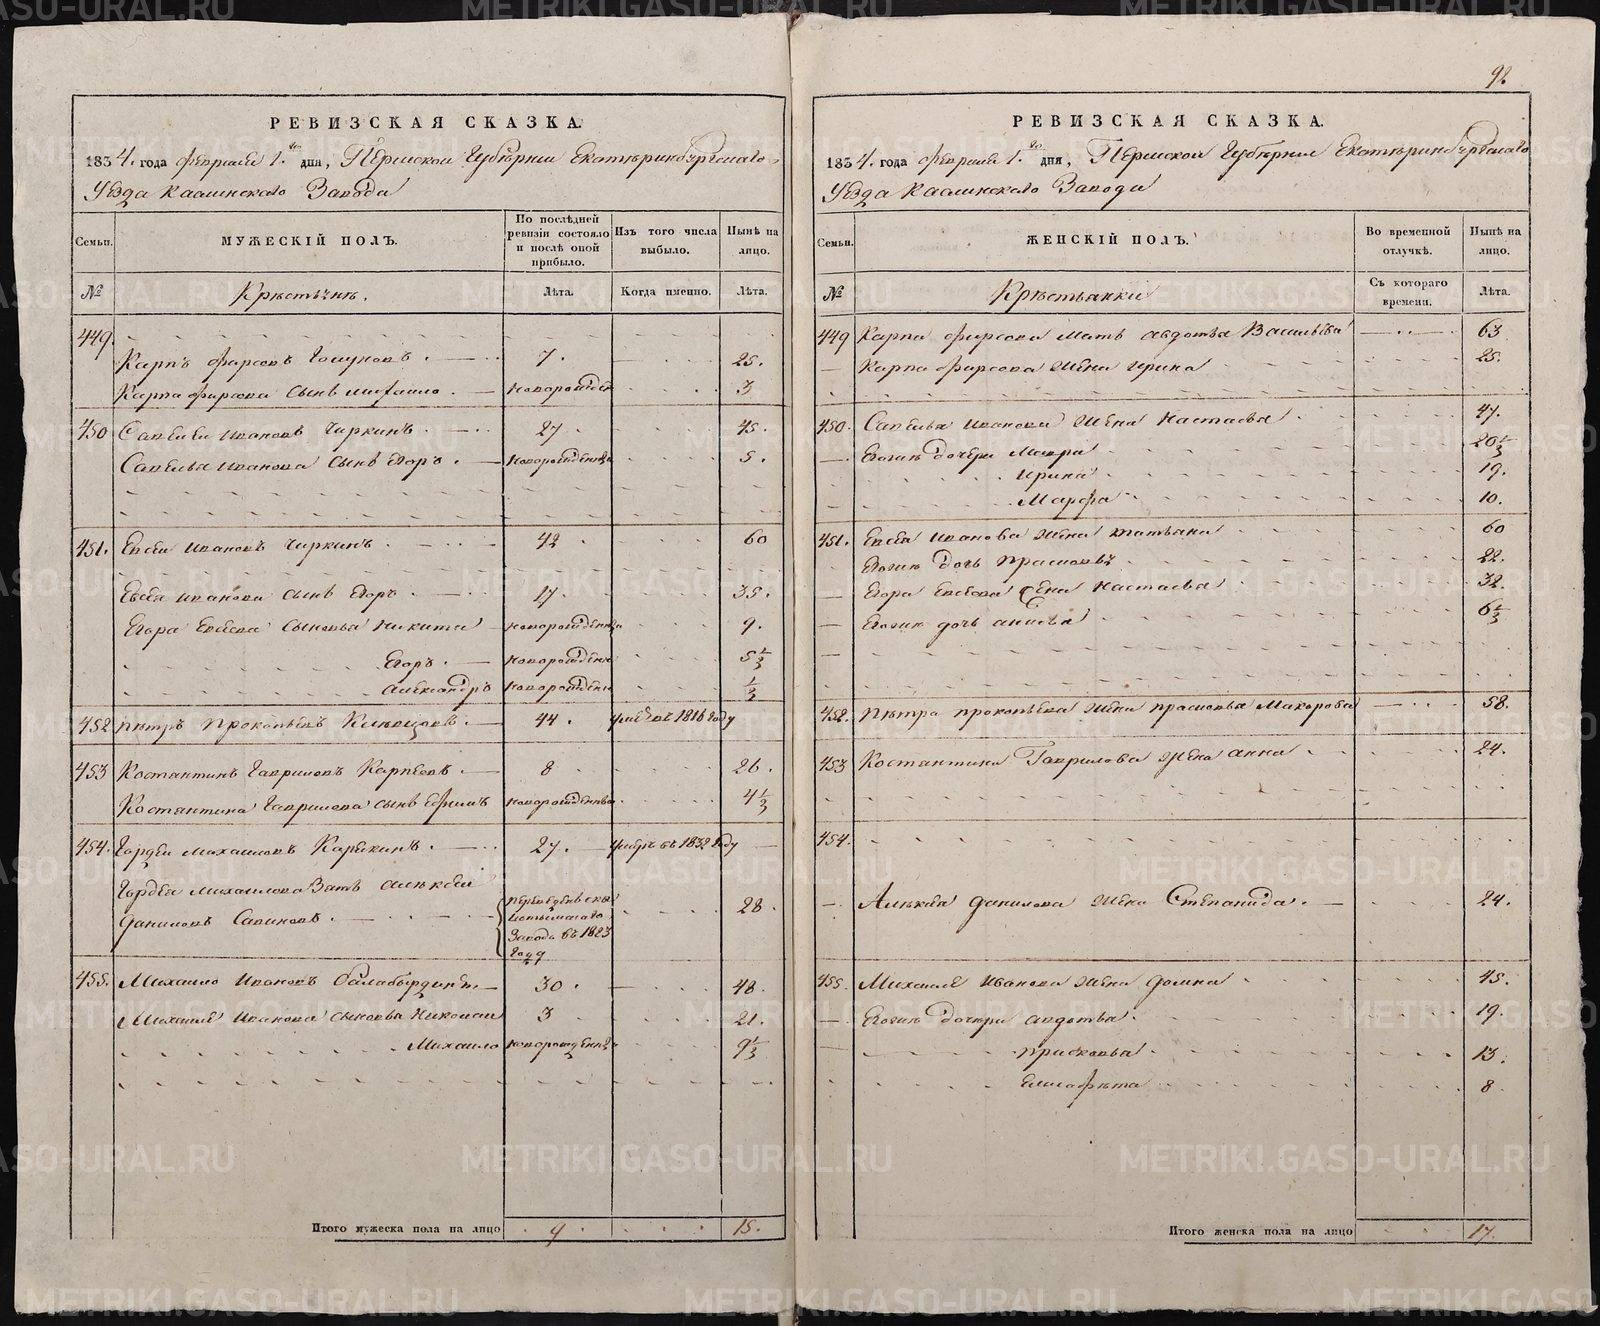 92
РЕВИЗСКАЯ СКАЗКА.
1834. года февраля 1. го дня, Пермской Губернии Екатеринбургскаго
Уезда Каслинскаго Завода
Семьи.
МУЖЕСКІЙ ПОЛЪ.
По послѣдней ревизіи состояло и послѣ оной прибыло.
Изъ того числа выбыло.
Нынѣ на лицо.
№
Крестьянѣ.
Лѣта.
Когда именно.
Лѣта.
449.
Карпъ Фирсовъ 7. 25.
Карпа Фирсова сынъ Михаило новорожден 3
450 Савелей Ивановъ Чиркинъ 27 45.
Савелья Иванова сынъ Егоръ новорожденны 5.
451. Евсей Ивановъ Чиркинъ 42 60
Евсея Иванова сынъ Егоръ 17. 35.
Егора Евсеева сыновья Никита новорожденны 9.
Егоръ новорожден 5 1/2
Александръ новорожден 1/2
452 Петръ Прокопьевъ 44. умре въ 1816 году
453 Костантинъ Гавриловъ Карпеевъ 8 26.
Костантина Гаврилова сынъ Ефимъ новорожденны 4 1/2
454. Гордей Михаиловъ Карякинъ 27. умеръ въ 1832 году
Гордея Михаилова зять Алексей
Даниловъ Савиновъ 28
Завода въ 1823
году
455. Михаило Ивановъ Балабурдинъ 30. 48.
Михаила Иванова сыновья Николаи 3 21.
Михаило новорожденны 9 1/2
Итого мужеска пола на лицо 9 15.
РЕВИЗСКАЯ СКАЗКА.
1834. года февраля 1. го дня, Пермской Губернии Екатеринбургскаго
Уезда Каслинскаго Завода
Семьи.
ЖЕНСКІЙ ПОЛЪ.
Во временной отлучкѣ.
Нынѣ на лицо.
№
Крестьянки
Съ котораго времени.
Лѣта.
449 Карпа Фирсова мать Авдотья Васильева 63
Карпа Фирсова жена Ирина 25.
450. Савелья Иванова жена Настасья 47.
Егожъ дочери Мавра 20 1/2
Ирина 19.
Марфа 10.
451. Евсея Иванова жена Татьяна 60
Егожъ дочь Прасковья 22.
Егора Евсеева жена Настасья 32.
Егожъ дочь Анисья 6 1/2
452. Петра Прокопьева жена Прасковья Макарова 58.
453 Костантина Гаврилова жена Анна 24.
454.
Алексея Данилова жена Степанида 24.
455. Михаила Иванова жена Домна 45.
Егожъ дочери Авдотья 19.
Прасковья 13.
Елисафета 8.
Итого женска пола на лицо 17.
METRIKI.GASO-URAL.RU